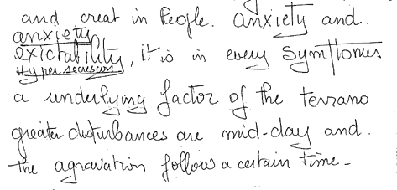 and creat in People. Anxiety and
anxiety
exictability, it is in every Symptoms
a underlying factor of the terrano
greater disturbances are mid-day and.
the agraviation follows a certain time-